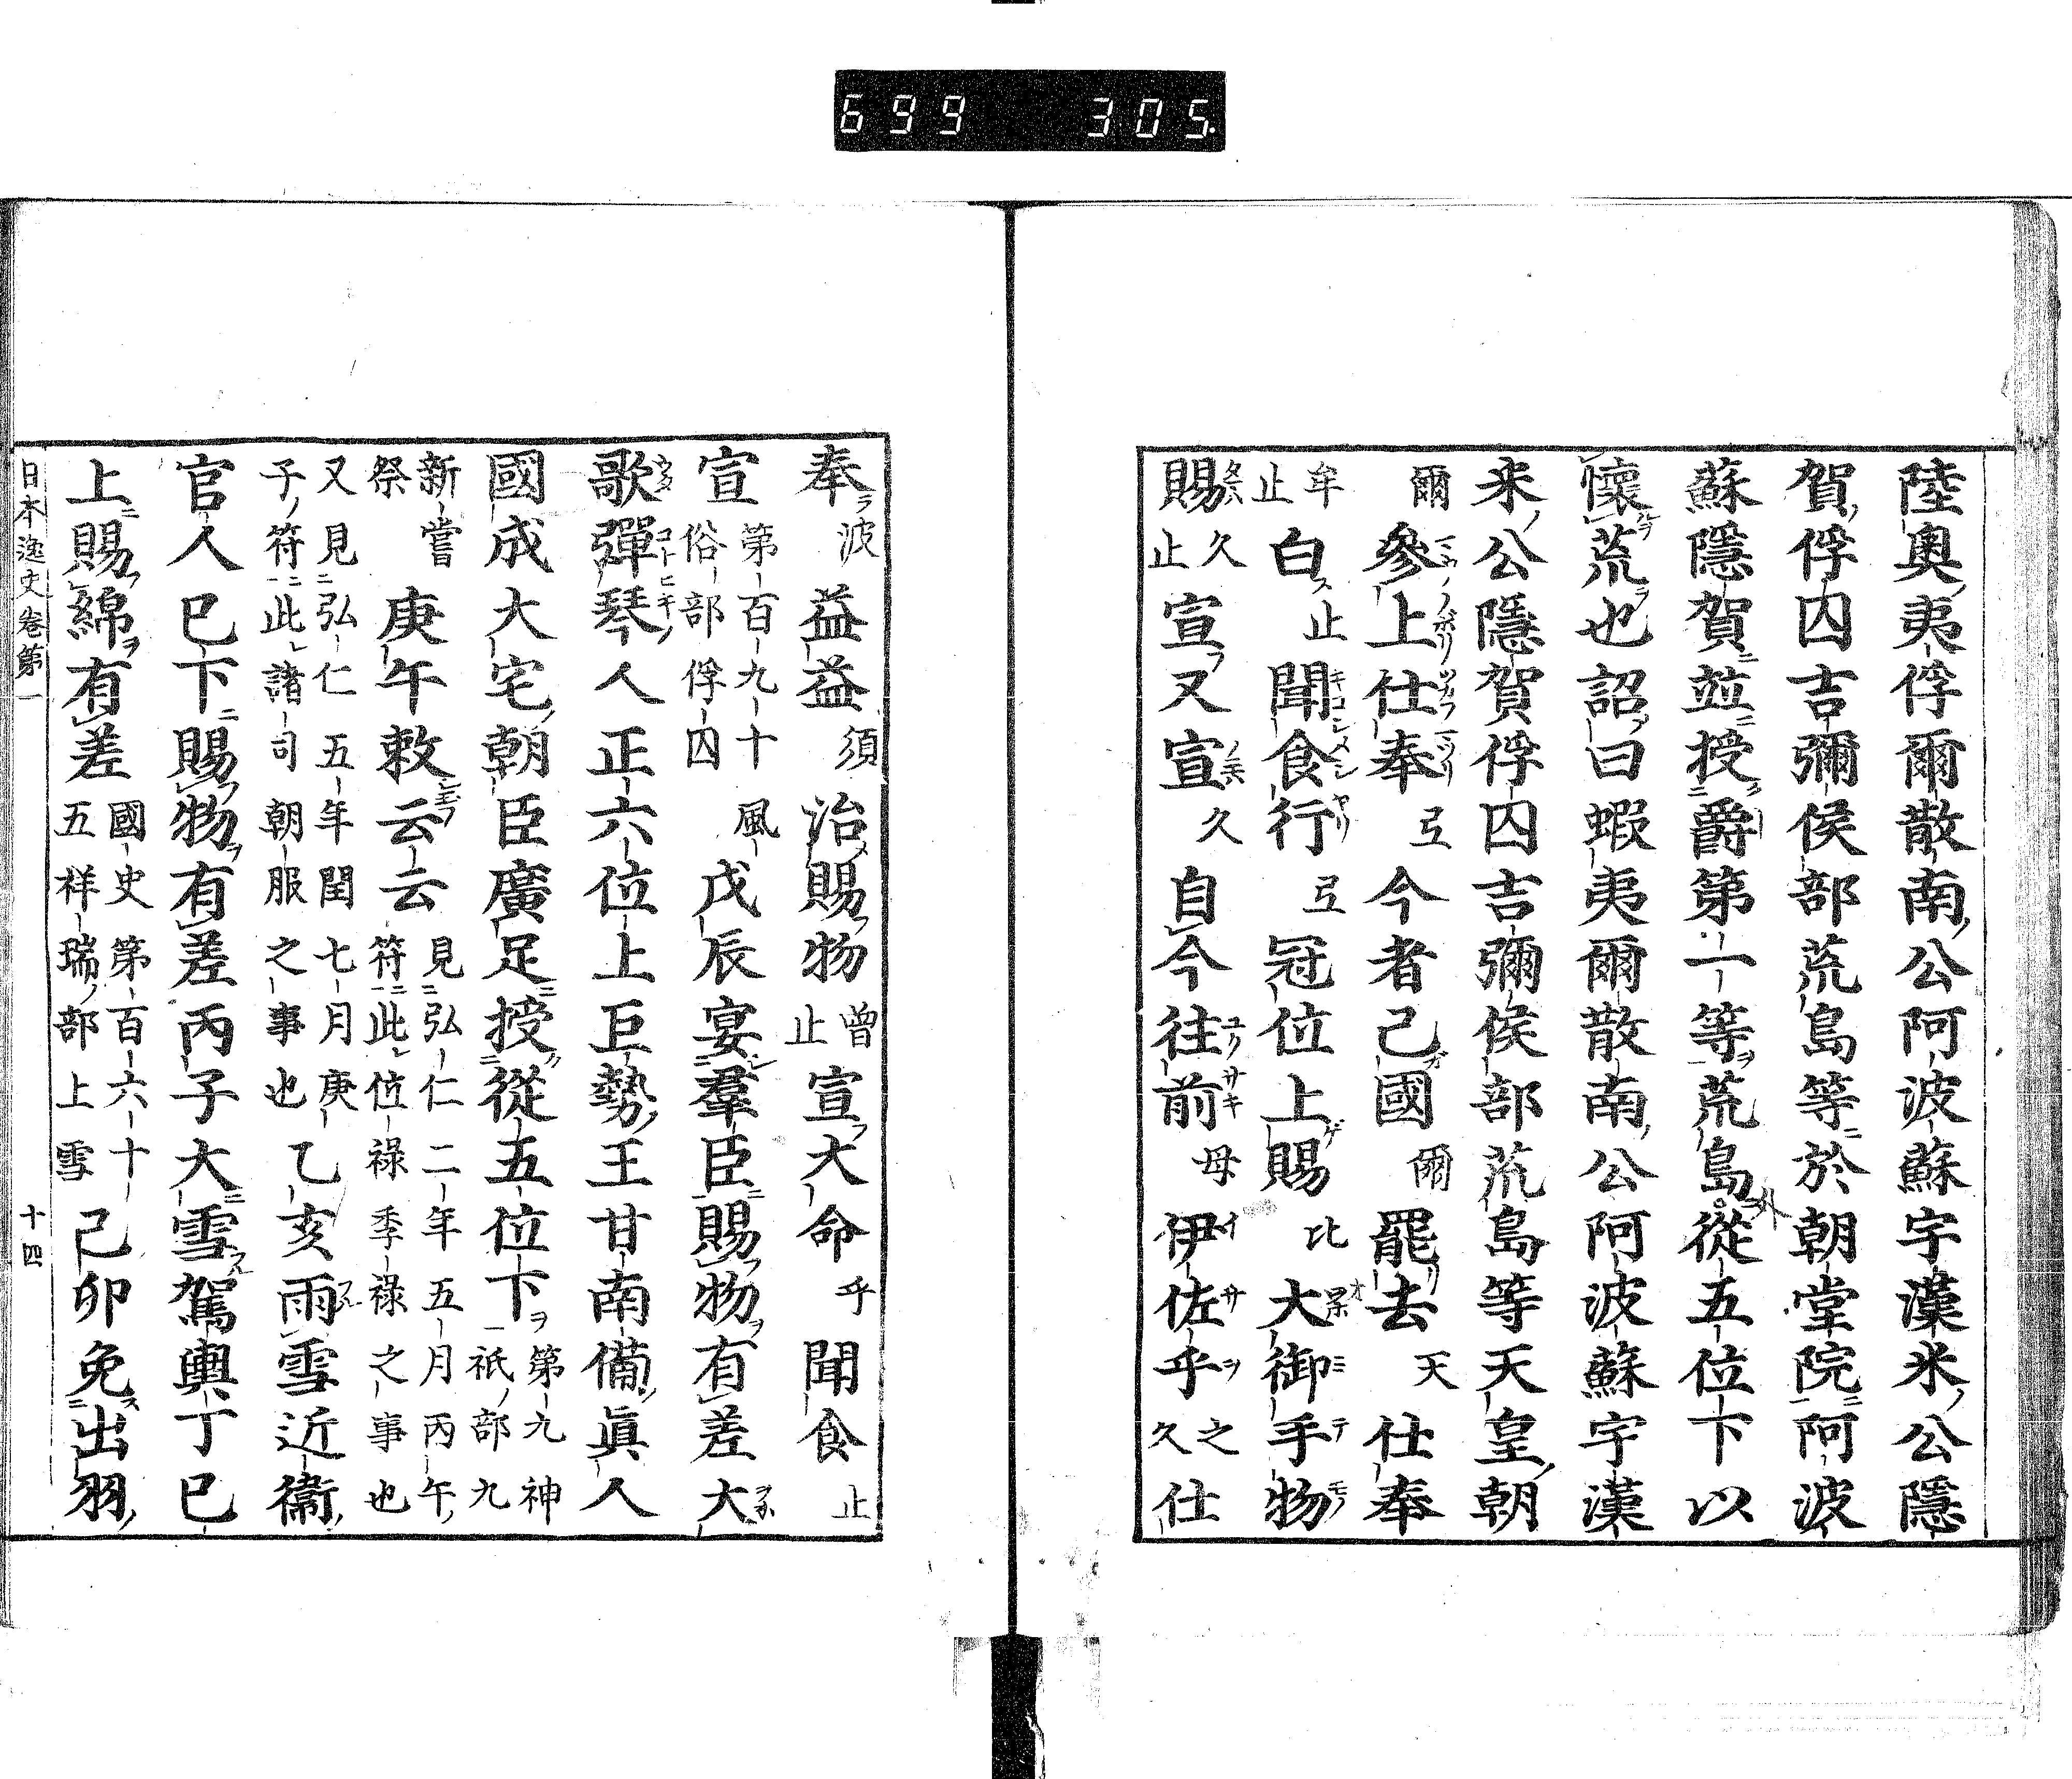 699 305.
陸奥夷俘爾散南公阿波蘇宇漢米公隱
賀俘囚吉彌侯部荒島等於朝堂院阿波
蘇隱賀並授爵第一等荒島外從五位下以
懷荒也詔曰蝦夷爾散南公阿波蘇宇漢
米公隱賀俘囚吉彌侯部荒島等天皇朝
爾參上仕奉弖今者己國爾罷去天仕奉
牟止白止聞食行弖冠位上賜比大御手物
賜久止宣又宣久自今往前母伊佐乎之久仕
奉波益益須治賜物曾止宣大命乎聞食止
宣第百九十風俗部俘囚戊辰宴羣臣賜物有差大
歌彈琴人正六位上巨勢王甘南備眞人
國成大宅朝臣廣足授從五位下第九神祇部九
新嘗祭庚午敕云云見弘仁二年五月丙午符此位祿季祿之事也
又見弘仁五年閏七月庚子符此諸司朝服之事也乙亥雨雪近衞
官人巳下賜物有差丙子大雪駕輿丁巳
上賜綿有差國史第百六十五祥瑞部上雪己卯免出羽
日本逸史卷第一 十四